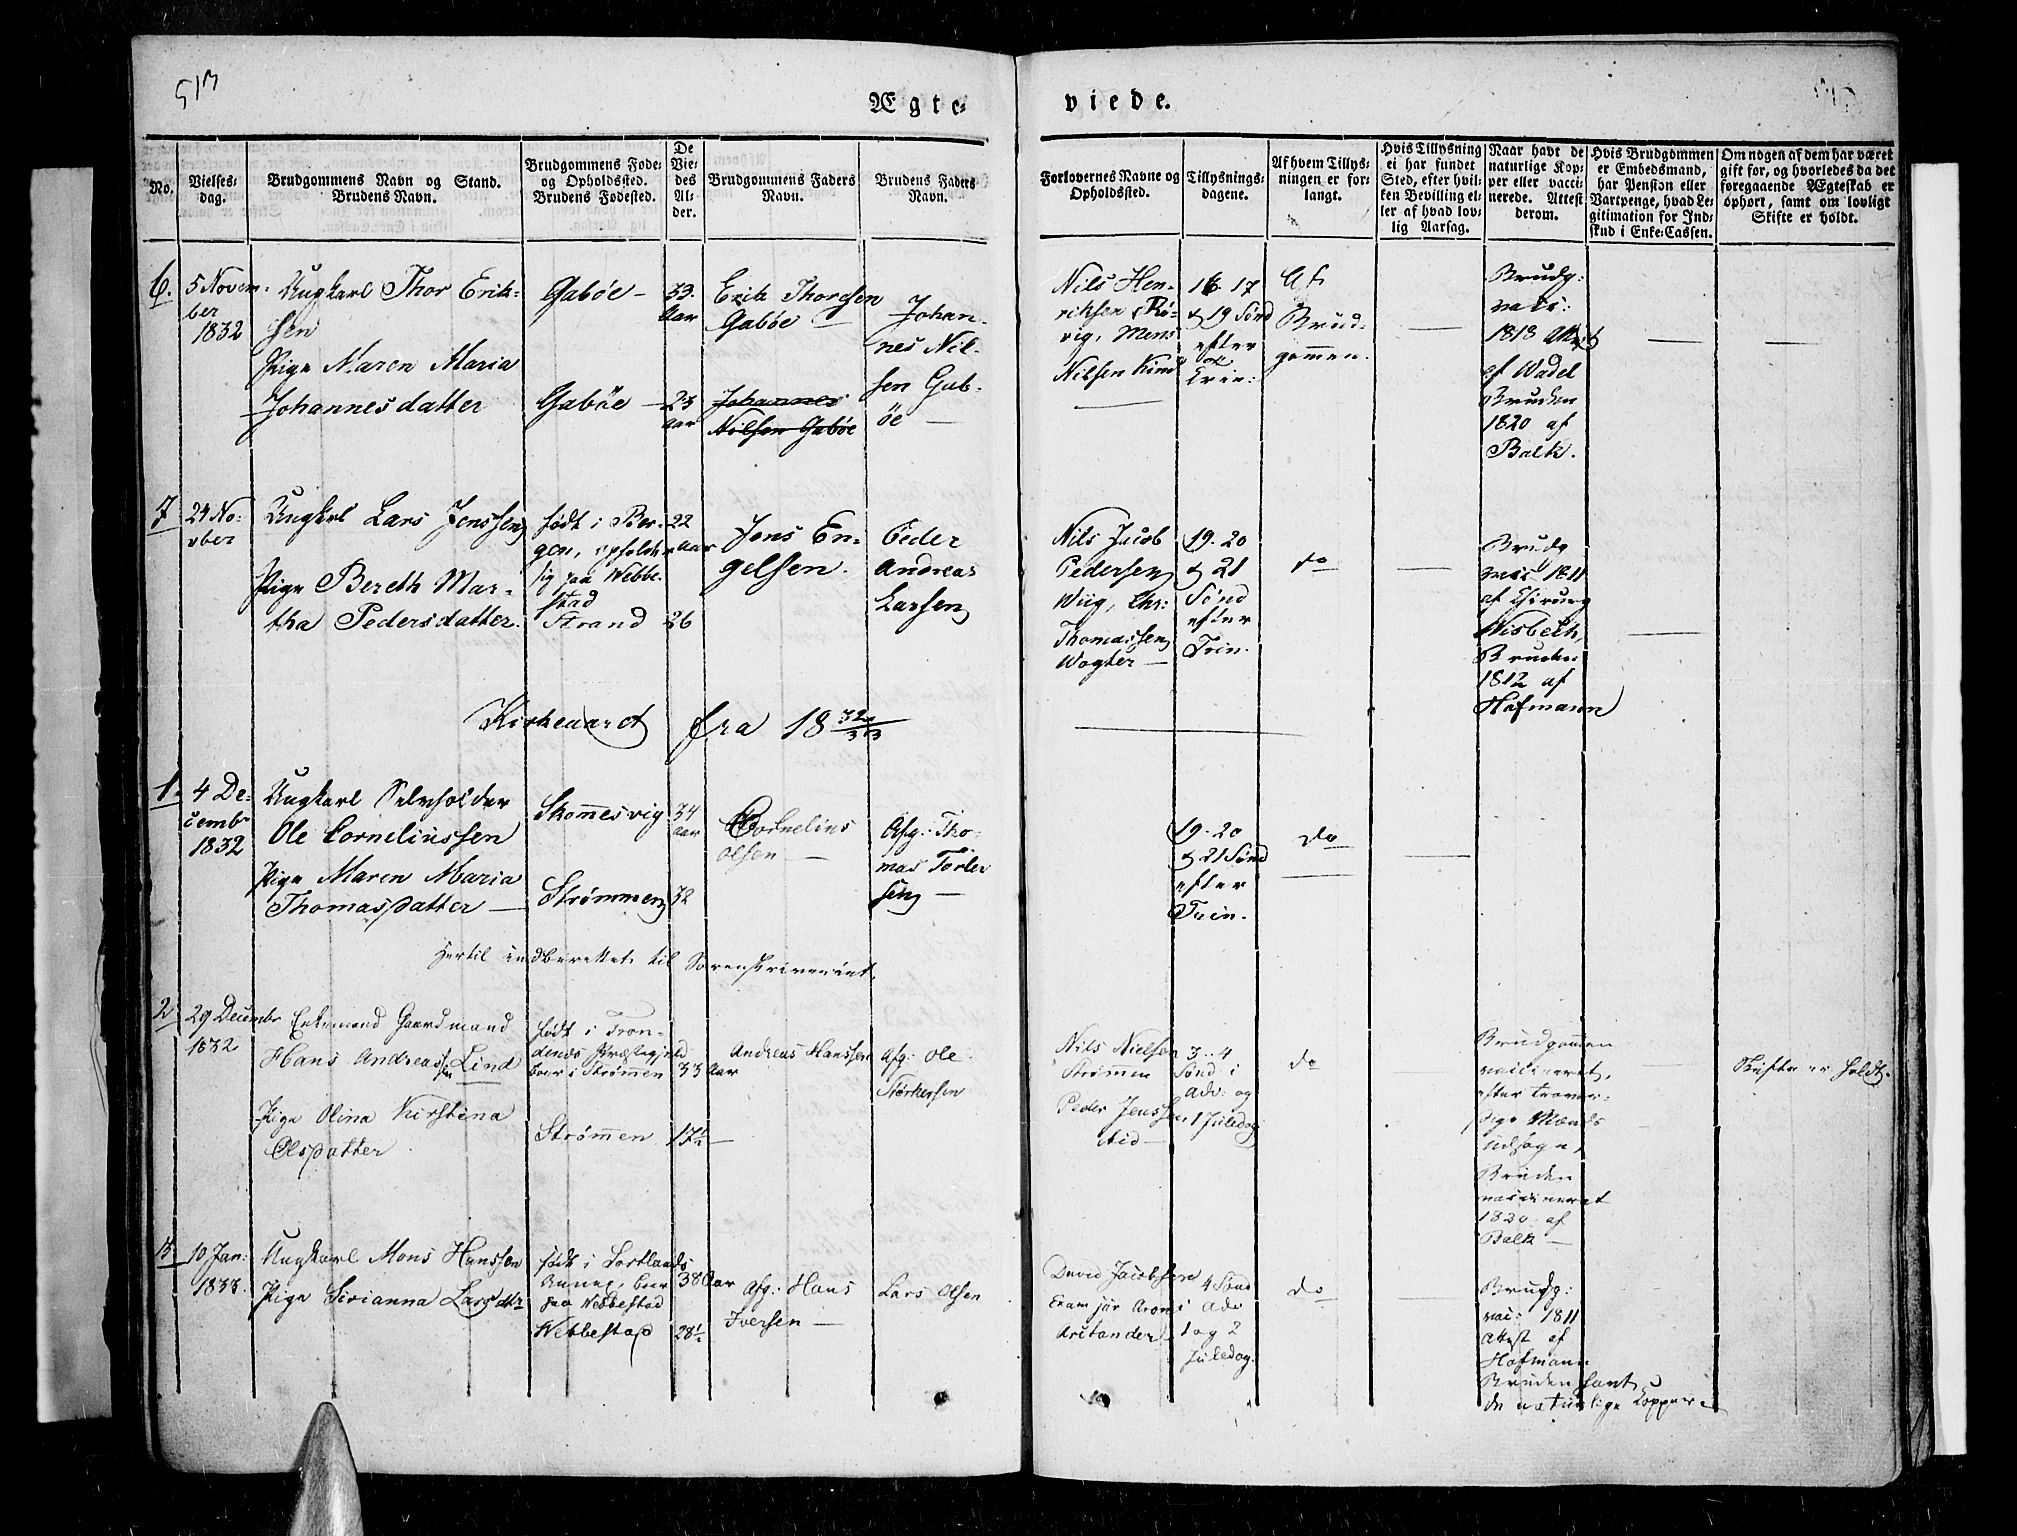 513
Ægte-
viede.
No.
Vielses-
dag.
Brudgommens Navn og Stand.
Brudens Navn.
Brudgommens Føde-
og Opholdssted.
Brudens Fødested.
De
Vie-
des
Al-
der.
Brudgommens Faders
Navn.
Brudens Faders
Navn.
Forlovernes Navne og
Opholdssted.
Tillysnings-
dagene.
Af hvem Tillys-
ningen er for-
langt.
Hvis Tillysning
ei har fundet
Sted, efter hvil-
ken Bevilling el-
ler af hvad lov-
lig Aarsag.
Naar havt de
naturlige Kop-
per eller vacci-
nerede. Attest
derom.
Hvis Brudgommen
er Embedsmand,
har Pension eller
Vartpenge, hvad Le-
gitimation for Ind-
skud i Enke-Cassen.
Om nogen af dem har været
gift før, og hvorledes da det
foregaaende Ægteskab er
ophørt, samt om lovligt
Skifte er holdt.
6.
5 Novem-
ber
1832
Ungkarl Thor Erik-
sen
Pige Maren Maria
Johannesdatter
Gaböe —
Gaböe —
33
Aar
23
Aar
Erik Thordsen
Gaböe —
Johannes
Nilsen Gaböe
Johan-
nes Nil-
sen Gab-
öe —
Nils Hen-
riksen
vig, Mens
Nilsen Kind
16. 17
& 19 Sønd
efter
Trin:
Af
Brud-
gommen.
Brudg:
vacc:
1818 Attest
af Wadel
Bruden
1820 af
Balk.
7
24 No-
vber
Ungkarl Lars Jenssen
Pige Bereth Mar-
tha Pedersdatter.
født i Ber-
gen, opholder
sig paa Webbe-
stad
Strand
22
Aar
26
Jens En-
gelsen.
Peder
Andreas
Larsen
Nils Jacob
Pedersen
Wiig, Chr:
Thomassen
Wogter —
19. 20
& 21
Sønd
efter
Trin.
do
Brudg
vacc 1811
af Chirurg
Nisbeth,
Bruden
1812 af
Hofmann
Kirkeaaret fra 18 32/33
1.
4 De-
cembr
1832
Ungkarl Selveholder
Ole Corneliussen
Pige Maren Maria
Thomasdatter —
Skomesvig
Strømmen
34
Aar
32
Cornelius
Olsen —
Afg: Tho-
mas Torler
sen —
19. 20
& 21 Sønd
efter
Trin.
do
Hertil indberettet til Sorenskriveriet.
2
29 Decembr
1832
Enkemand Gaardmand
Hans Andreassen Lind
Pige Olina Kirstina
Olsdatter
født i Tron-
denæs Præstegjeld
boer i Strømmen
Strømmen
33 Aar
17½ —
Andreas Hanssen
Afg: Ole
Størkersen
Nils Nielsen
Strømmen
Peder Jenssen
Eid —
3.. 4
Sønd i
Adv: og
1 Juledag
do
Brudgommen
vaccineret,
efter troevær-
dige Mænds
Udsagn,
Bruden
vaccineret
1820 af
Balk —
Skifte er holdt.
3
10 Jan:
1833.
Ungkarl Mons Hanssen
Pige Sirianna Larsdtr
født i Sortlands
Annex, boer
paa Webbestad
Webbestad
38 Aar
28½
Afg: Hans
Iversen —
Lars Olsen
David Jacobsen
Exam jur Aron
Arctander
4 Sønd
i Adv
1 og 2
Juledag.
do
Brudg:
vacc: 1811
Attest af
Hofmann
Bruden havt
de naturlige Kopper